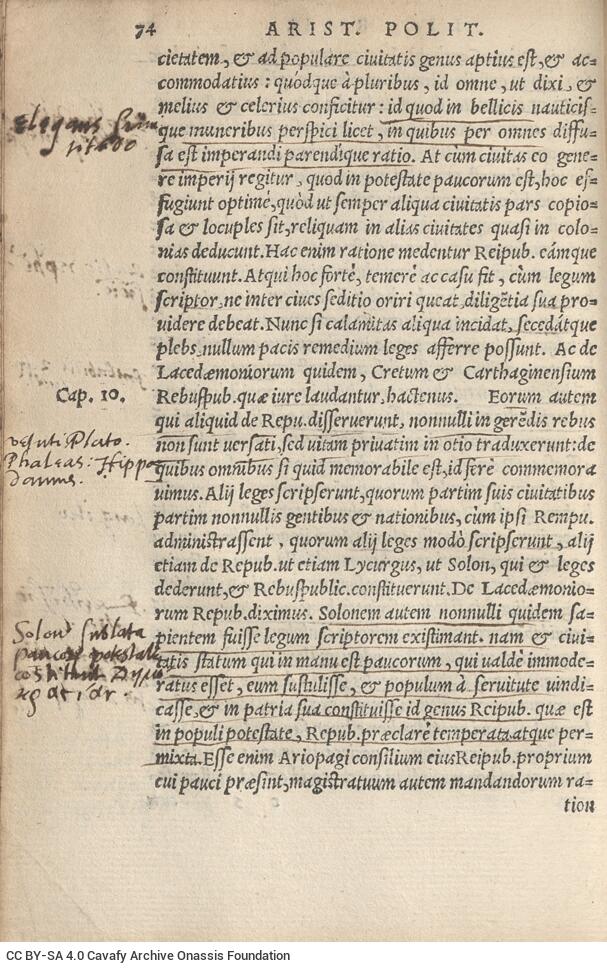 74 ARIST. POLIT.
cietatem, & ad populare ciuitatis genus aptius est, & ac=
commodatius: quódque à pluribus, id omne, ut dixi, &
melius & celerius conficitur: id quod in bellicis nauticis=
que muneribus perspici licet, in quibus per omnes diffu=
sa est imperandi parendíque ratio. At cùm ciuitas eo gene=
re imperij regitur, quod in potestate paucorum est, hoc ef=
fugiunt optimè, quòd ut semper aliqua ciuitatis pars copio=
sa & locuples sit, reliquam in alias ciuitates quasi in colo=
nias deducunt. Hac enim ratione medentur Reipub. eámque
constituunt. Atqui hoc fortè, temerè ac casu fit, cùm legum
scriptor, ne inter ciues seditio oriri queat, diligẽtia sua pro=
uidere debeat. Nunc si calamitas aliqua incidat, secedátque
plebs, nullum pacis remedium leges afferre possunt. Ac de
Lacedæmoniorum quidem, Cretum & Carthaginensium
Cap. 10. Rebuspub. quæ iure laudantur, hactenus. Eorum autem
qui aliquid de Repu. disseruerunt, nonnulli in gerẽdis rebus
non sunt uersati, sed uitam priuatim in otio traduxerunt: de
quibus omnibus si quid memorabile est, id ferè commemora
uimus. Alij leges scripserunt, quorum partim suis ciuitatibus
partim nonnullis gentibus & nationibus, cùm ipsi Rempu.
administrassent, quorum alij leges modò scripserunt, alij
etiam de Repub. ut etiam Lycurgus, ut Solon, qui & leges
dederunt, & Rebuspublic. constituerunt. De Lacedæmonio=
rum Repub. diximus. Solonem autem nonnulli quidem sa=
pientem fuisse legum scriptorem existimant. nam & ciui=
tatis statum qui in manu est paucorum, qui ualdè immode=
ratus esset, eum sustulisse, & populum à seruitute uindi=
casse, & in patria sua constituisse id genus Reipub. quæ est
in populi potestate, Repub. præclarè temperata atque per=
mixta. Esse enim Ariopagi consilium eius Reipub. proprium
cui pauci præsint, magistratuum autem mandandorum ra=
tion
elegans
veluti Plato.
Phaleas: Hippo
damus.
Solon sublata
paucorum potestate
CC BY-SA 4.0 Cavafy Archive Onassis Foundation